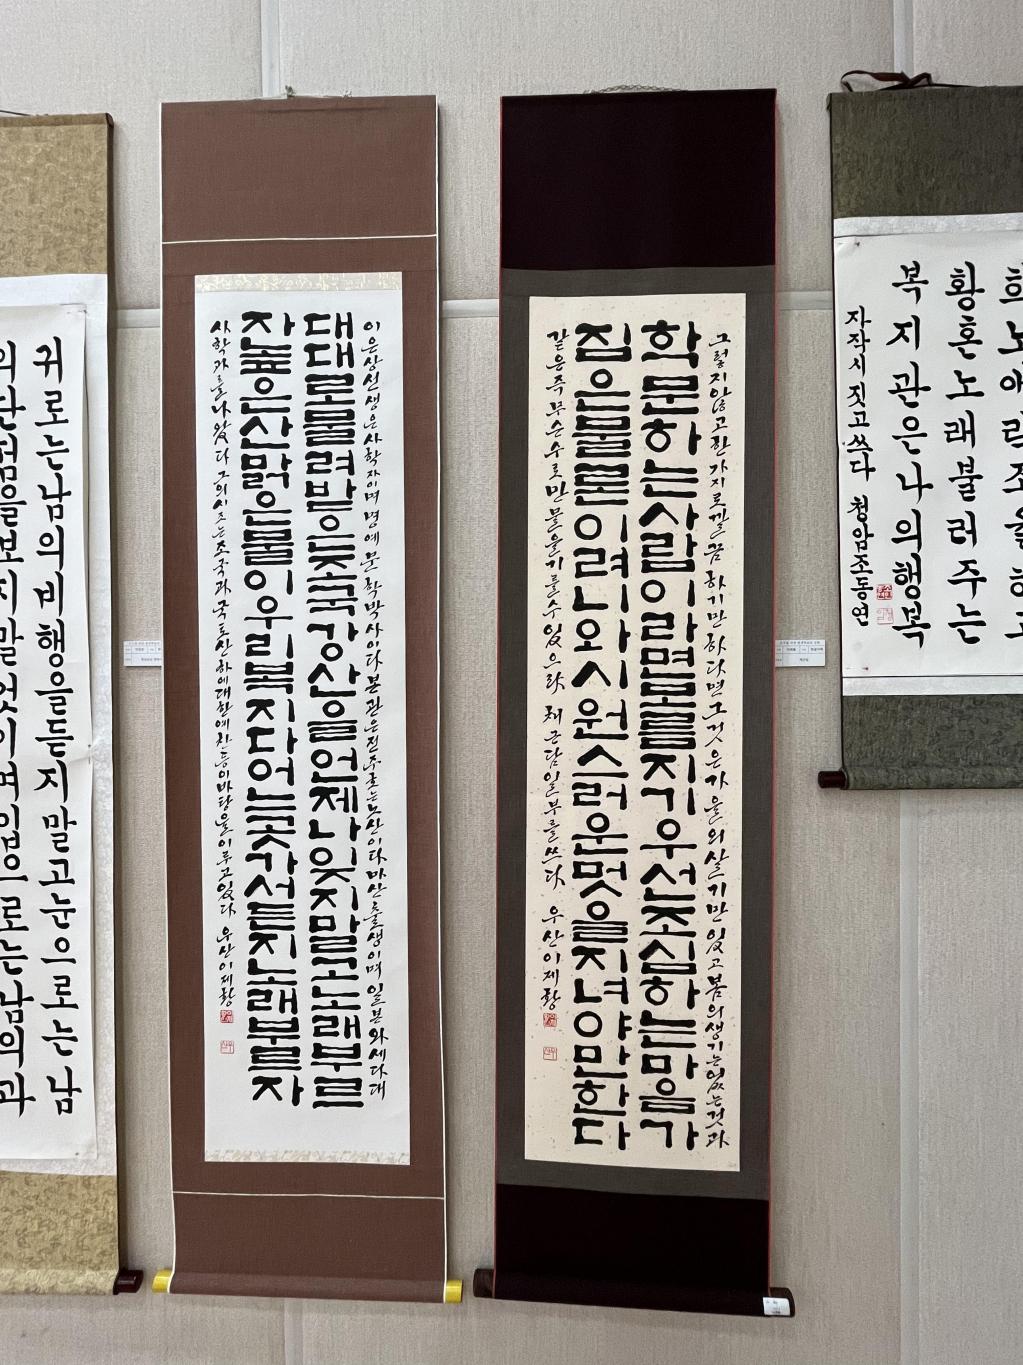 귀로는남의비행을듣지말고눈으로는남
의단점을보지말것이며입으로는남의과
이은상선생은사학자이며명예문학박사이다본관은전주호는노산이다마산출생이며일본와세다대
대대로물려받은조국강산을언제나잊지말고노래부르
자높은산맑은물이우리복지다어느곳가서든지노래부르자
사학과를나왔다 그의시조는조국과국토산하에대한예찬등이바탕을이루고있다 우산이제황
그렇지않고한가지로깔끔하기만하다면그것은가을의살기만있고봄의생기는없는것과
학문하는사람이라면모름지기우선조심하는마음가
짐은물론이려니와시원스러운멋을지녀야만한다
같은즉무슨수로만물을기를수있으랴 채근담일부를쓰다 우산이제황
희노애락조율하고
황혼노래불러주는
복지관은나의행복
자작시짓고쓰다 청암조동연